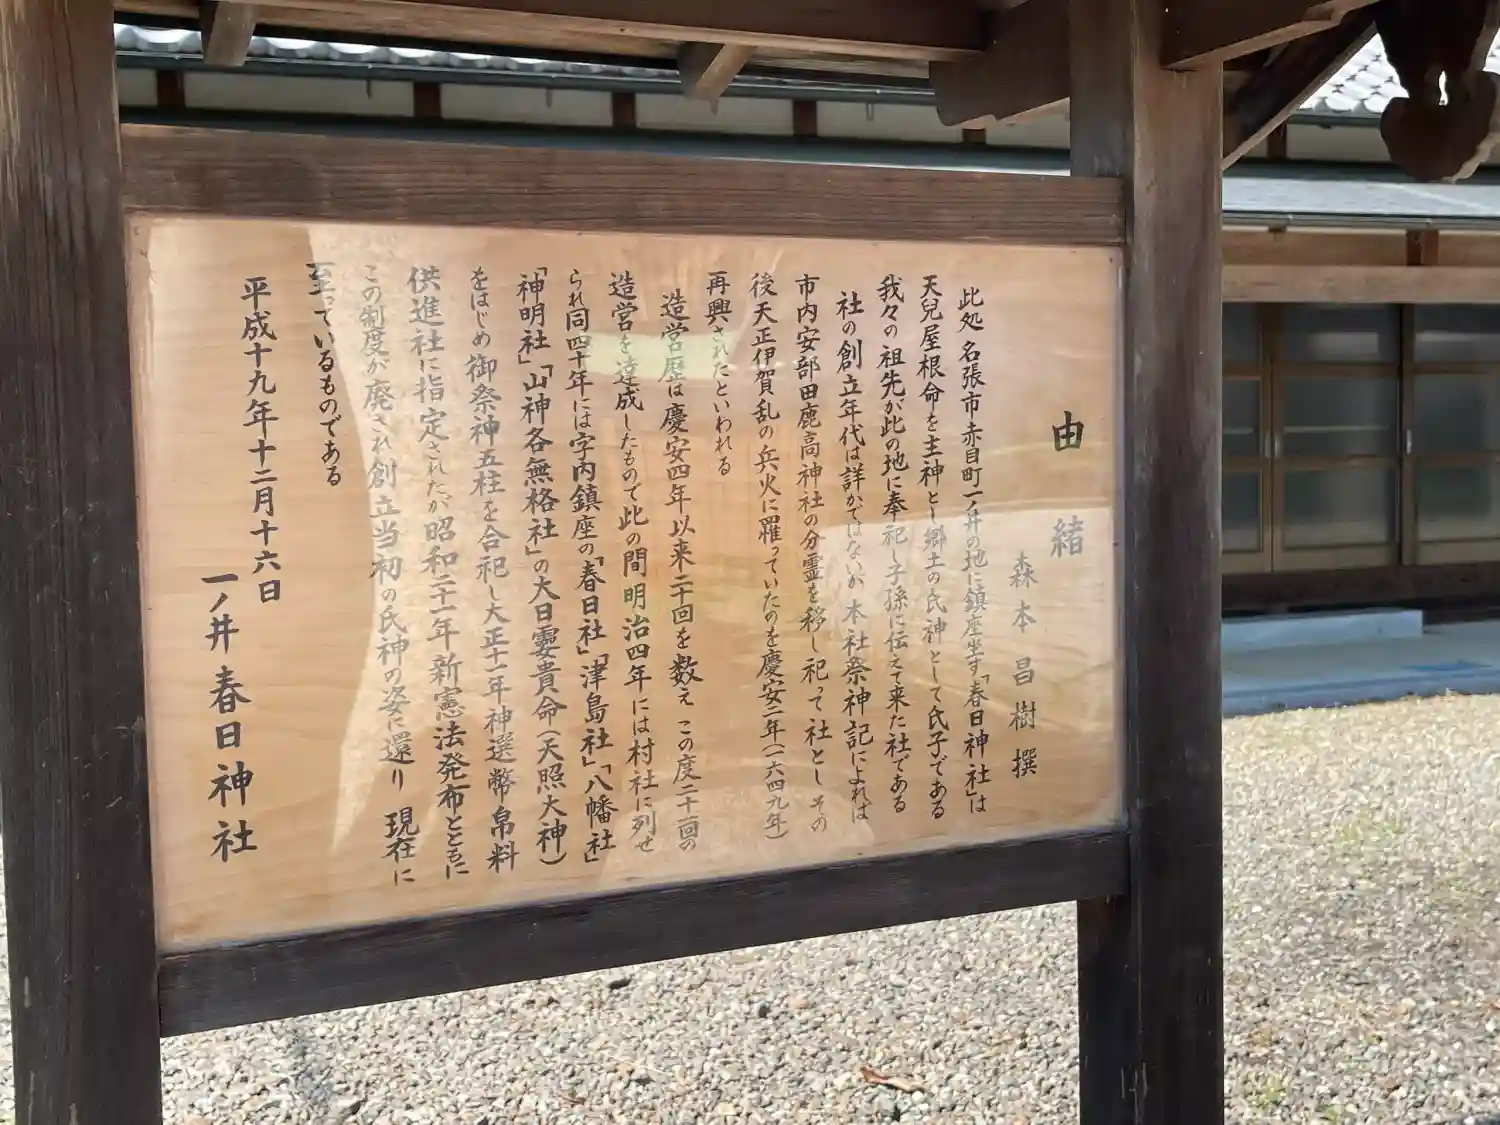 由緒
森本昌樹撰
此処 名張市赤目町一ノ井の地に鎮座坐す「春日神社」は
天兒屋根命を主神とし郷土の氏神として氏子である
我々の祖先が此の地に奉祀し子孫に伝えて来た社である
社の創立年代は詳かではないが 本社祭神記によれば
市内安部田鹿高神社の分霊を移し祀って社とし その
後天正伊賀乱の兵火に罹っていたのを慶安二年(一六四九年)
再興されたといわれる
造営歴は慶安四年以来二十回を数え この度二十一回の
造営を達成したもので此の間明治四年には村社に列せ
られ同四十年には字内鎮座の「春日社」「津島社」「八幡社」
「神明社」「山神各無格社」の大日孁貴命(天照大神)
をはじめ御祭神五柱を合祀し大正十一年神選幣帛料
供進社に指定されたが昭和二十一年新憲法発布とともに
この制度が廃され創立当初の氏神の姿に還り 現在に
至っているものである
平成十九年十二月十六日
一ノ井 春日神社